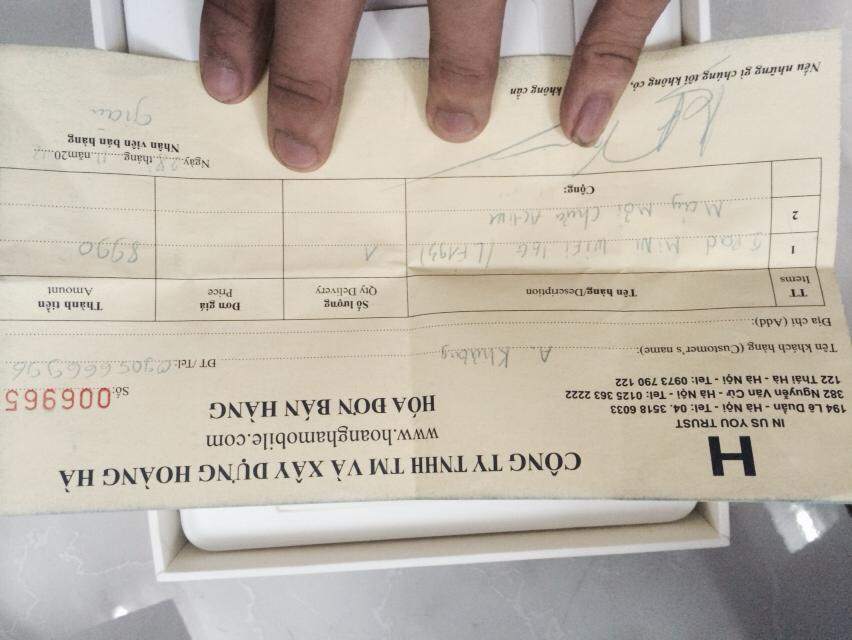 H
IN US YOU TRUST
194 Lê Duẩn - Hà Nội - Tel: 04. 3518 6033
382 Nguyễn Văn Cừ - Hà Nội 0125 363 2222
122 Thái Hà - Hà Nội - Tel: 0973 790 122
CÔNG TY TNHH TM VÀ XÂY DỰNG HOÀNG HÀ
www.hoanghamobile.com
HÓA ĐƠN BÁN HÀNG
Số: 006965
Tên khách hàng (Customer's name): A. Khương
ĐT/Tel: 0905666996
Địa chỉ (Add):
TT Items Tên hàng/Description Số lượng Qty Delivery Đơn giá Price Thành tiền Amount
1 iPad Mini Wifi 16G 1 8990
2 Máy Mới Chưa Active
Cộng:
Ngày 28 tháng 11 năm20 12
Nhân viên bán hàng
Nếu những gì chúng tôi không có,
không cần